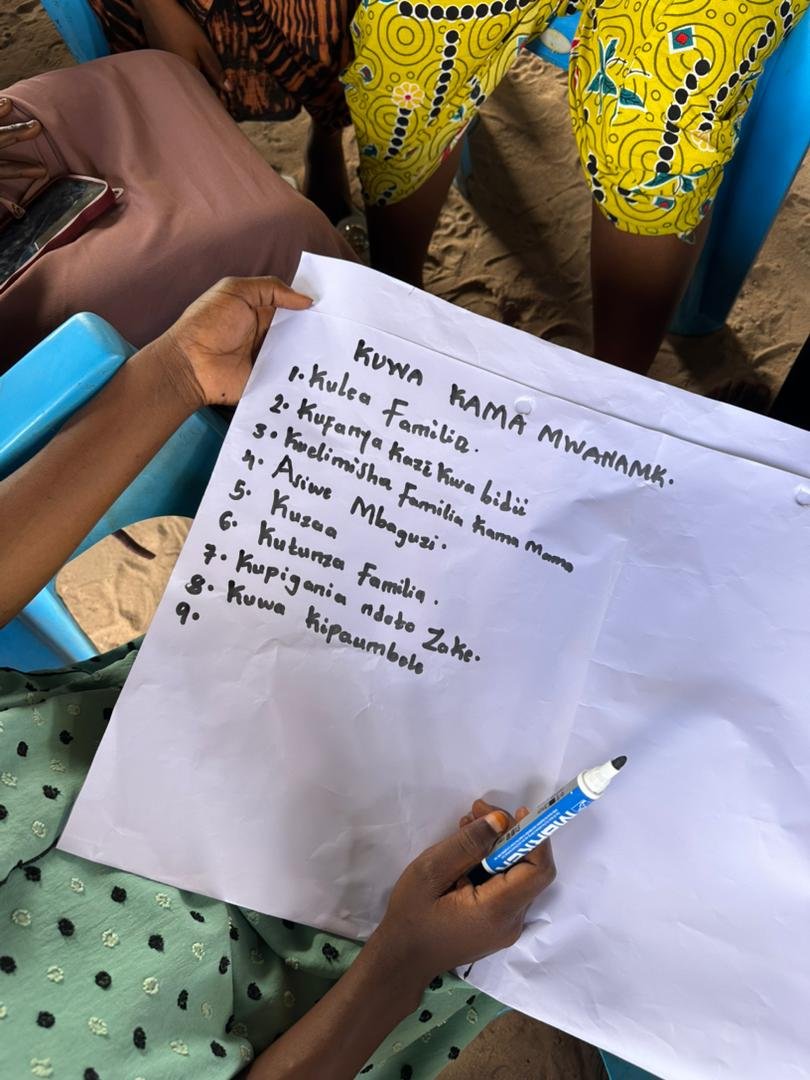 KUWA KAMA MWANAMK.
1. Kulea Familia.
2. Kufanya kazi kwa bidii
3. Kuelimisha Familia kama mama
4. Asiwe Mbaguzi.
5. Kuzaa
6. Kutunza Familia.
7. Kupigania ndoto Zake.
8. Kuwa Kipaumbele
9.
MARKER